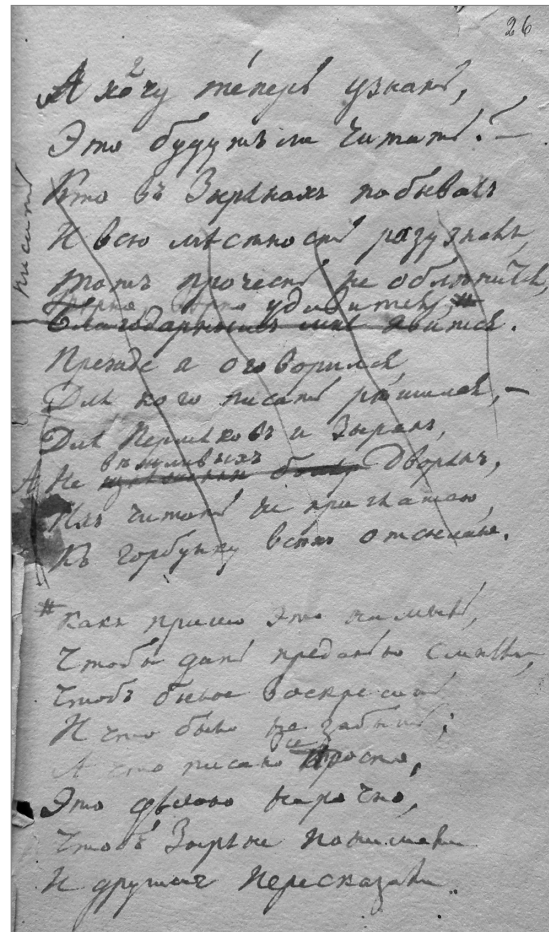 26
А хочу теперь узнать,
Это будутъ ли читать? —
Кто въ Зырянахъ побывалъ
И всю мѣстность разузналъ
тотъ прочесть не облѣнится,
удивится, #
Благодарнымъ мнѣ явится.
Прежде я оговорился,
Для кого писать рѣшился, —
Для Пермяковъ и Зырянъ,
вѣжливыхъ
А Не Дворянъ,
Ихъ читать не приглашаю,
Къ горбунку всѣхъ отсылаю.
писать
# Какъ пришло это на мысль,
Чтобы дать преданью смыслъ,
Чтобъ былое воскресить
И что было не забыть;
А что писано просто,
Это сдѣлано нарочно,
Чтобъ Зыряне понимали
И другимъ пересказали.